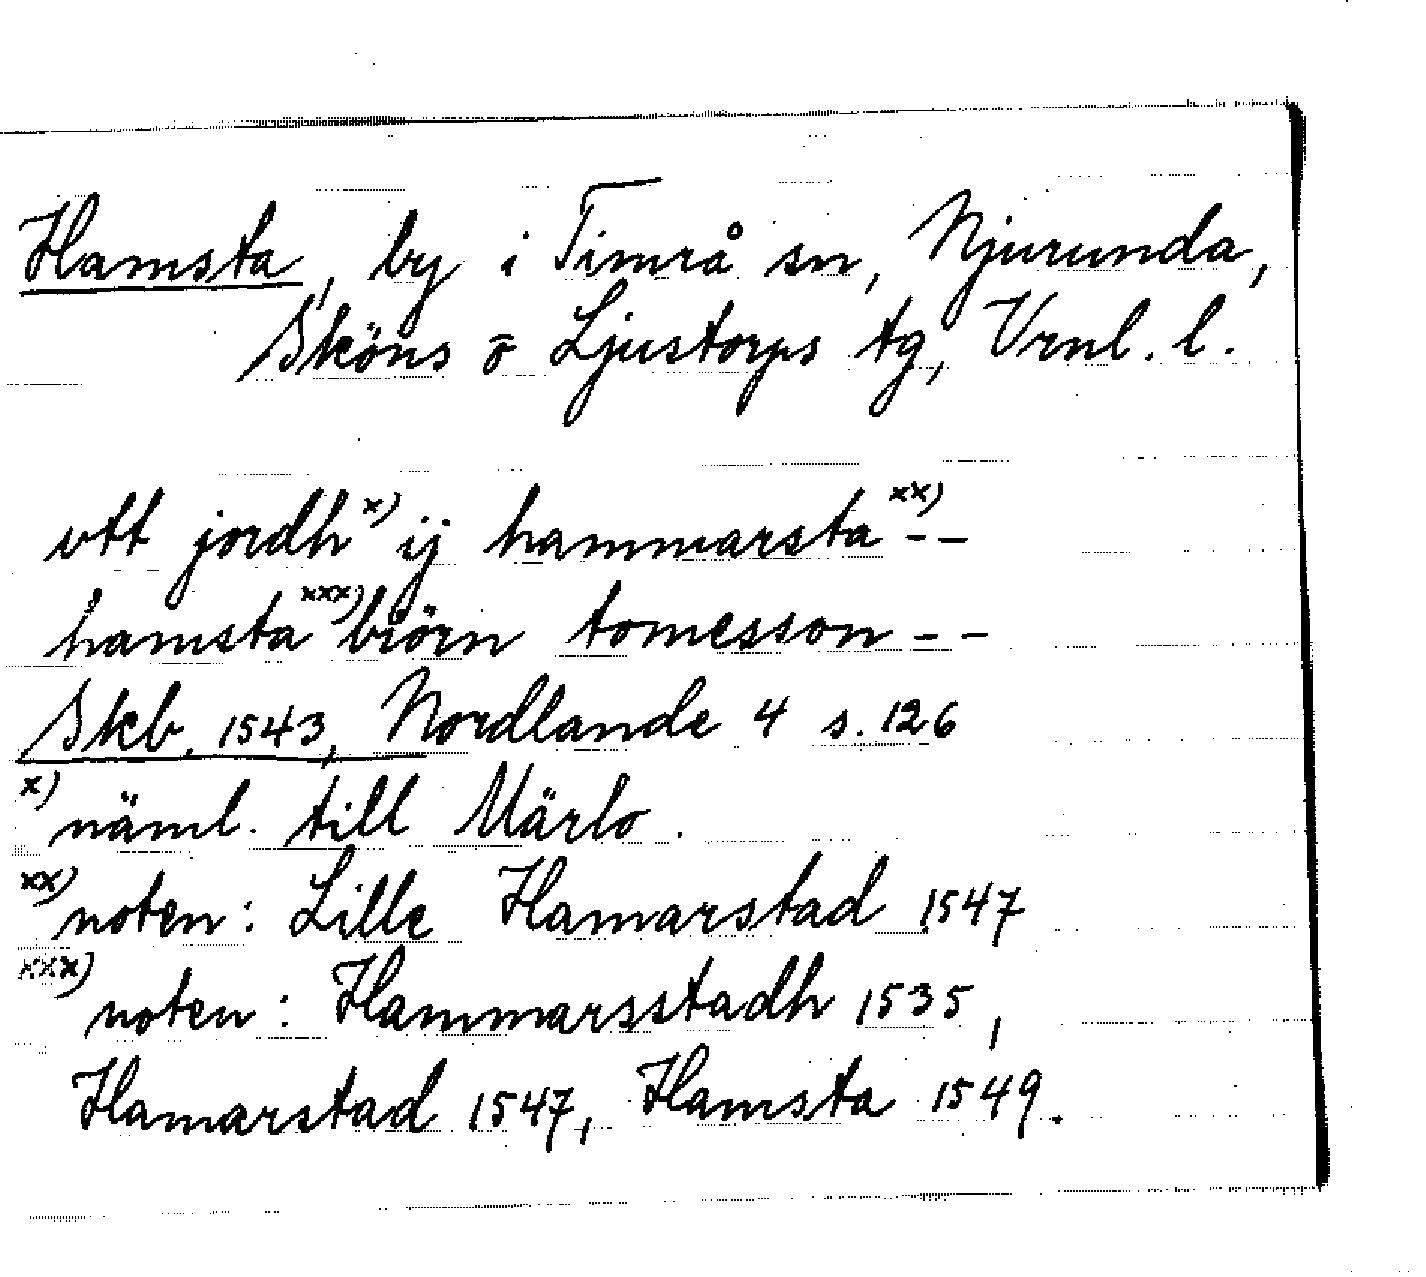 Hamsta, by i Timrå sn, Njurunda,
Sköns o Ljustorps tg, Vrnl. l.
vtt jordh x) ij hammarsta xx) - -
hamsta xxx) biörn tomesson - -
Skb. 1543, Nordlande 4 s. 126
x) näml. till Märlo.
xx) noten: Lille Hamarstad 1547
xxx) noten: Hammarsstadh 1535,
Hamarstad 1547, Hamsta 1549.